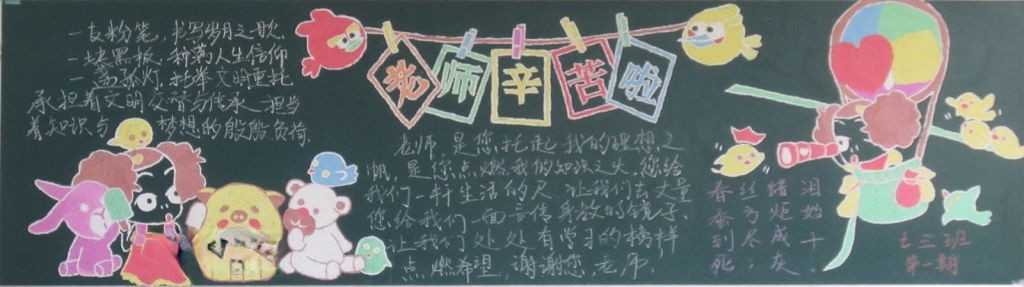 一支粉笔，书写岁月之歌
一块黑板，种满人生信仰
一盏孤灯，托举文明重托
承担着文明文章与传承，担当
着知识与梦想的殷殷负荷。
老师辛苦啦
老师，是您托起我的理想之
帆，是您点燃我的知识之火，您给
我们一杆生活的尺，让我们去丈量
您给我们一面言传身教的镜子，
让我们处处有学习的榜样
点燃希望，谢谢您，老师。
春蚕到死丝方尽，
蜡炬成灰泪始干。
七三班
第一期